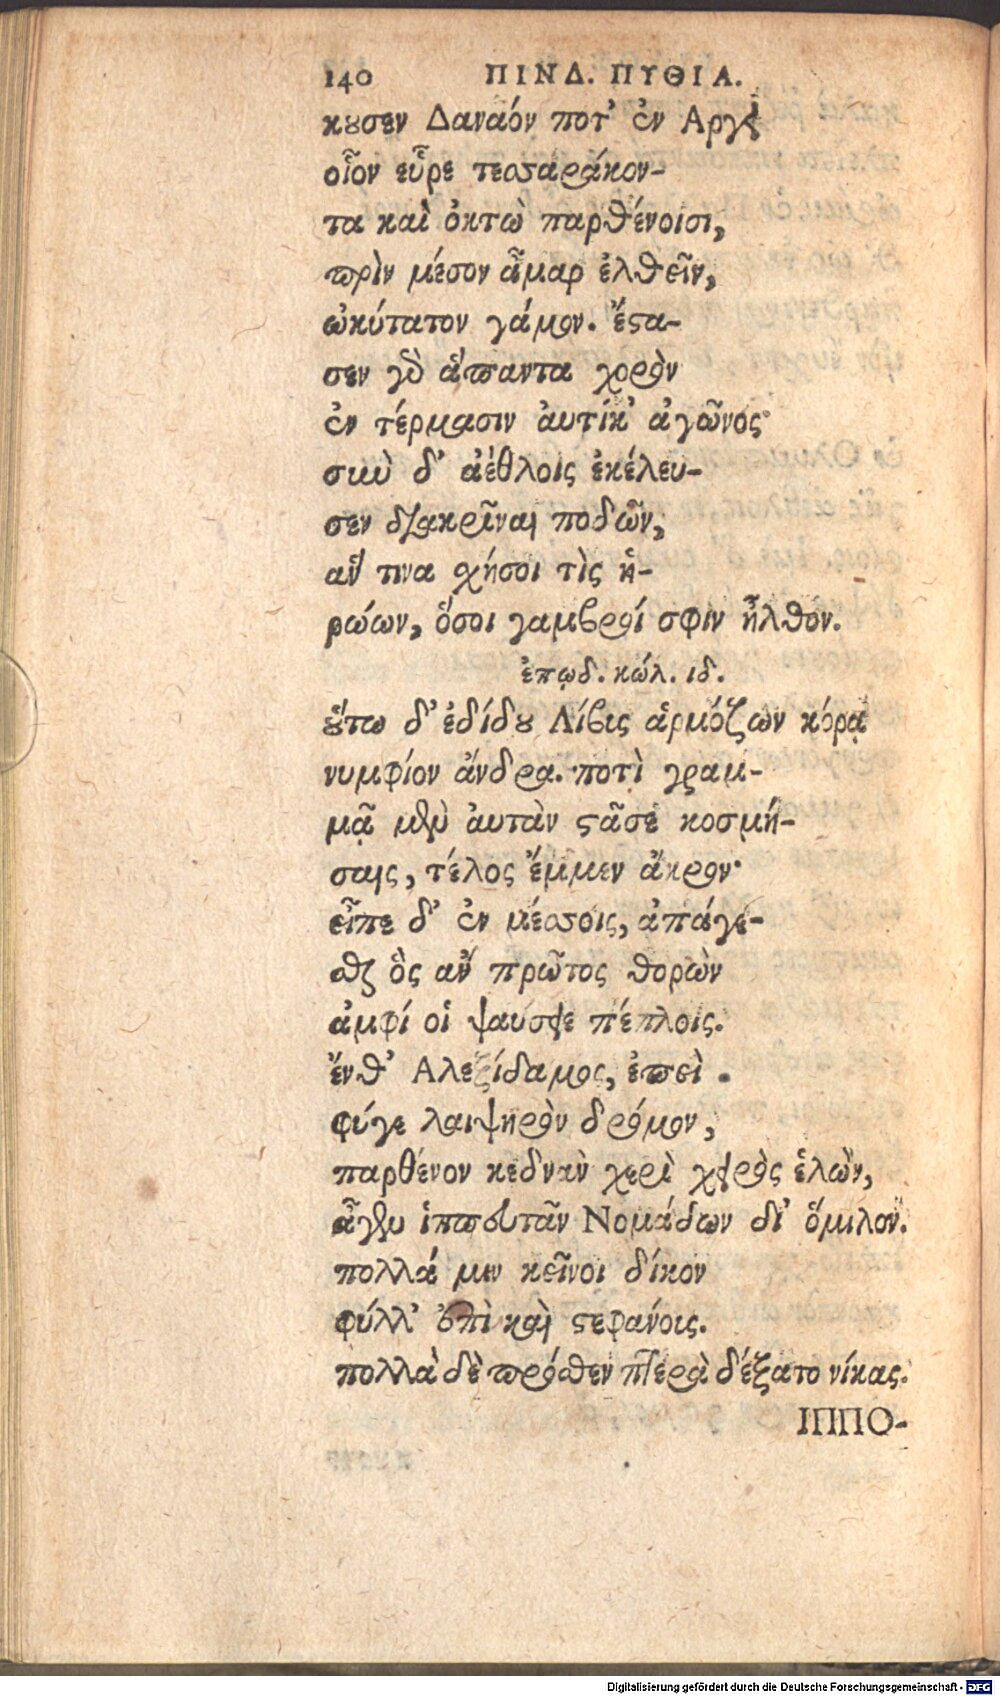 140 ΠΙΝΔ. ΠΥΘΙΑ.
κουσεν Δαναόν ποτ' ἐν Αργει
οἷον εὗρε τεσσαράκον-
τα καὶ ὀκτὼ παρθένοισι,
πρὶν μέσον ἆμαρ ἐλθεῖν,
ὠκύτατον γάμον. ἔστα-
σεν γὰρ ἅπαντα χορὸν
ἐν τέρμασιν ἀυτίκ' ἀγῶνος·
σιωὺ δ' ἀέθλοις ἐκέλευ-
σεν διακρῖναι ποδῶν,
ἅν τινα σχήσοι τὶς ἡ-
ρώων, ὅσοι γαμβροί σφιν ἦλθον.
ἐπῳδ. κώλ. ιδ.
οὕτω δ' ἐδίδου Λίβις ἁρμόζων κόρᾳ
νυμφίον ἄνδρα. ποτὶ γραμ-
μᾷ μὲν ἀυτὰν στᾶσε κοσμή-
σαις, τέλος ἔμμεν ἄκρον·
εἶπε δ' ἐν μέσσοις, ἀπάγε-
σθαι ὃς ἂν πρῶτος θορὼν
ἀμφί οἱ ψαύσειε πέπλοις.
ἔνθ' Αλεξίδαμος, ἐπεὶ
φύγε λαιψηρὸν δρόμον,
παρθένον κεδνὰν χερὶ χειρὸς ἑλὼν,
ἆγεν ἱππευτᾶν Νομάδων δι' ὅμιλον.
πολλά μιν κεῖνοι δίκον
φύλλ' ἐπὶ καὶ στεφάνοις.
πολλὰ δὲ πρόσθεν πτερὰ δέξατο νίκας.
ΙΠΠΟ-
Digitalisierung gefördert durch die Deutsche Forschungsgemeinschaft - DFG